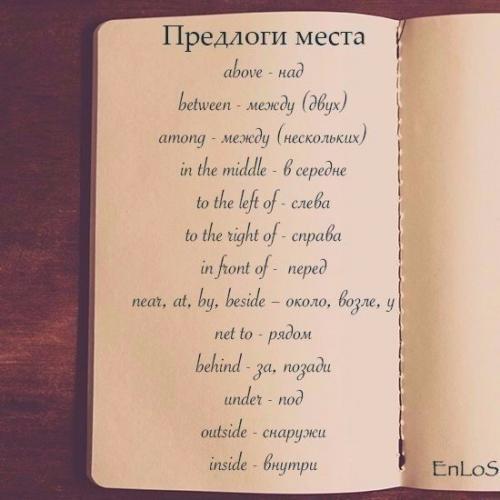 Предлоги места
above - над
between - между (двух)
among - между (нескольких)
in the middle - в середне
to the left of - слева
to the right of - справа
in front of - перед
near, at, by, beside – около, возле, у
net to - рядом
behind - за, позади
under - под
outside - снаружи
inside - внутри
EnLoS